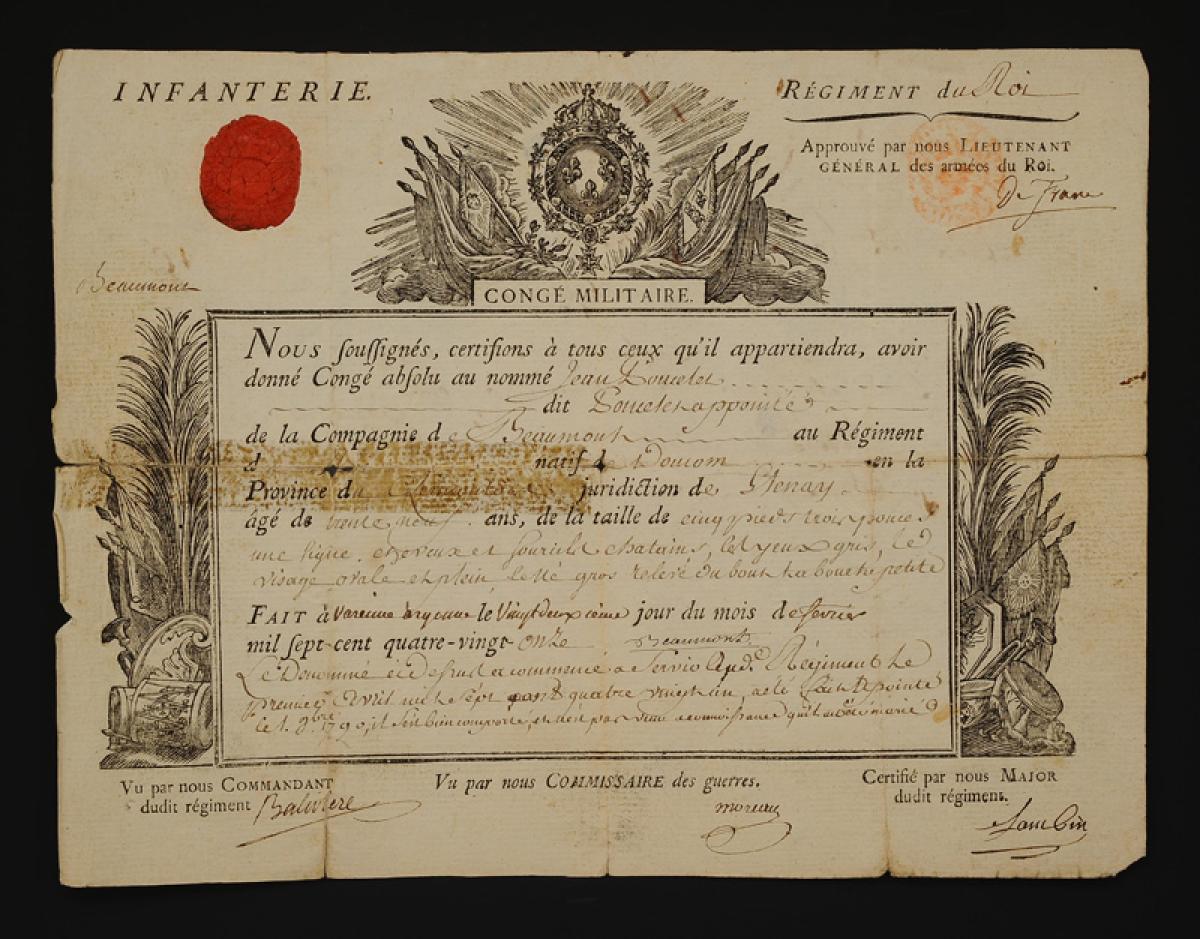 INFANTERIE.
RÉGIMENT du Roi
Approuvé par nous LIEUTENANT
GÉNÉRAL des armées du Roi.
Beaumont
CONGÉ MILITAIRE.
Nous soussignés, certifions à tous ceux qu'il appartiendra, avoir
donné Congé absolu au nommé Jean
dit appointé
de la Compagnie de Beaumont au Régiment
d natif de en la
Province du juridiction de Stenay
âgé de trente neuf ans, de la taille de cinq pieds trois pouces
une ligne, cheveux et sourcils chatains, les yeux gris, le
visage ovale et plein le né gros relevé du bout la bouche petite
FAIT à varenne argonne le vingt deuxieme jour du mois de fevrier
mil sept-cent quatre-vingt-onze Beaumont
Le Denommé ci dessus a commencé a servir Aud. Régiment le
premier Avril mil sept cent quatre vingt un, a été fait Apointé
le 1. 1790, il s'est bien comporté, et n'est pas venu a connoissance qu'il a été marié
Vu par nous COMMANDANT
dudit régiment
Vu par nous COMMISSAIRE des guerres.
moreau
Certifié par nous MAJOR
dudit régiment.